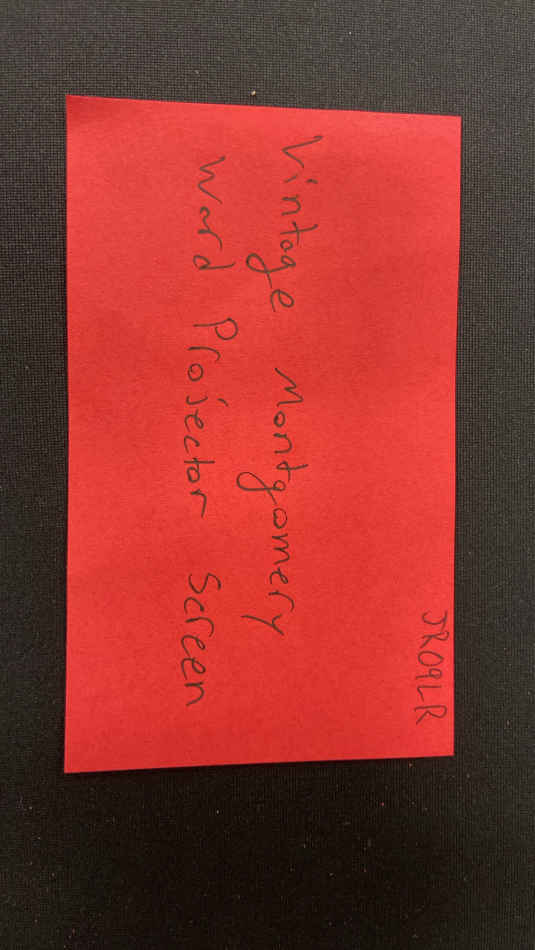 JR09LR
Vintage Montgomery
Ward Projector Screen